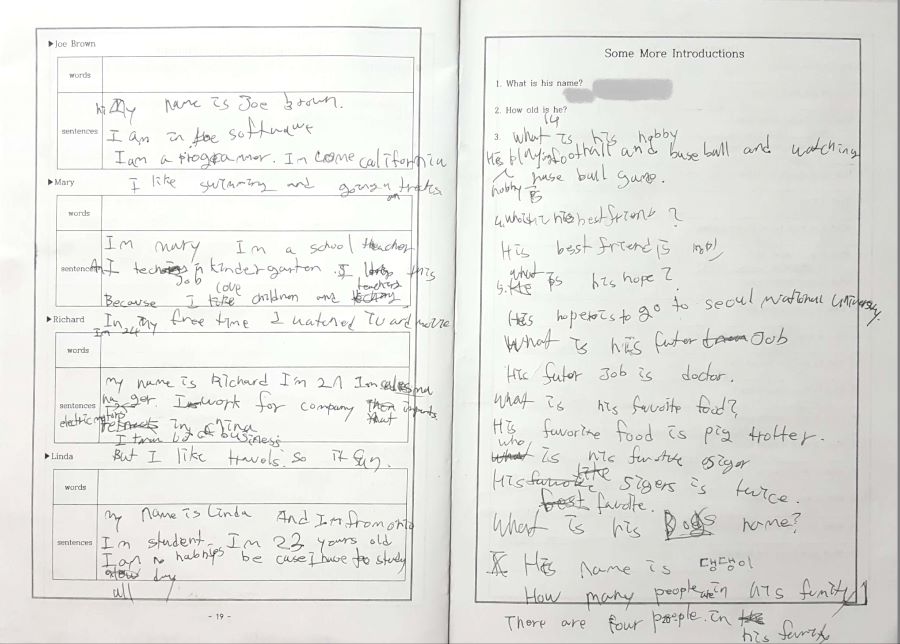 ▶Joe Brown
words
hi My name is Joe brown.
sentences
I am in the software
I am a programmer. Im come california
I like swimming and going on
▶Mary
words
Im mary Im a school teacher
sentences
I in kindergarten. I this
Job love
Because I children and
In my free time I watched TV and movie
▶Richard
Im 24
words
my name is Richard I'm 21 Im
sentences
work for company
that
in China
I business
But I like travels. so it fun.
▶Linda
words
my name is Linda And Im from ohio
sentences
Im student. Im 23 years old
I am no be case I have to study
day
all
- 19 -
Some More Introductions
1. What is his name?
2. How old is he?
14
3. what is his hobby
His playing football and base ball and watching
hobby is base ball game.
4. who is his best friend ?
His best friend is
what
5. is his hope ?
His hope is to go to seoul national university.
What is his futor Job
His futor Job is doctor.
What is his favoite food?
His favorite food is pig trotter.
who is his siger
His sigers is twice.
favoite.
What is his Dogs name?
His name is 댕댕이
How many people are in his famity
There are four people. in
his famity